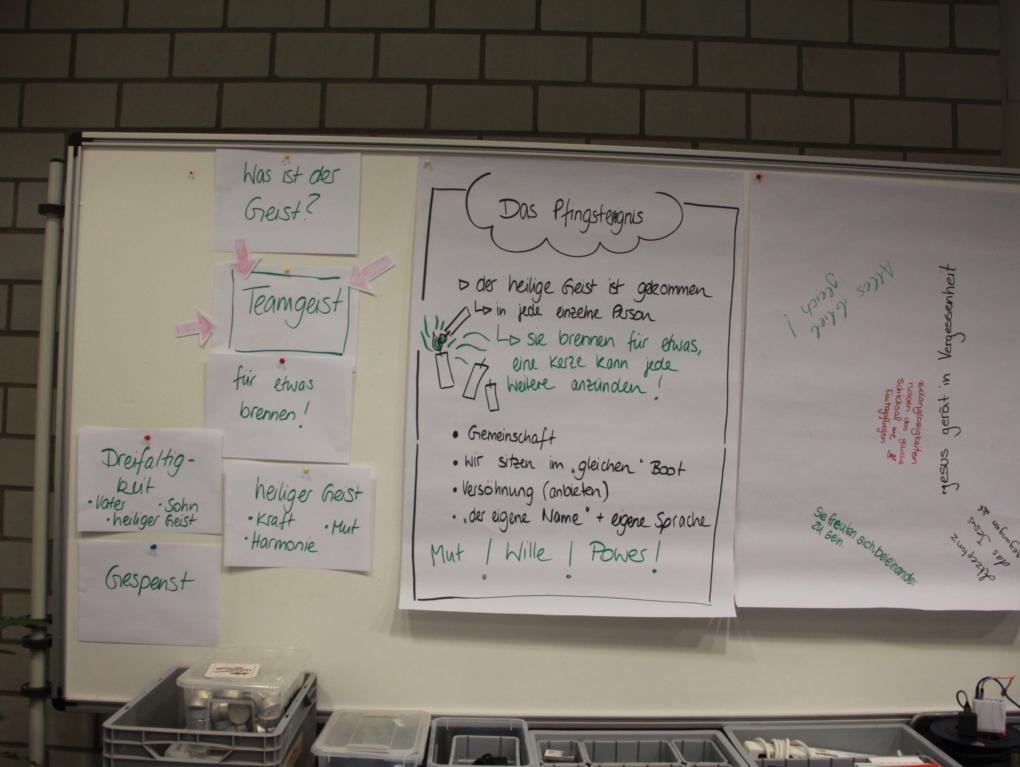 Was ist der
Geist?
Teamgeist
für etwas
brennen!
Dreifaltig-
keit
• Vater • Sohn
• heiliger Geist
heiliger Geist
• Kraft • Mut
• Harmonie
Gespenst
Das Pfingstereignis
▷ der heilige Geist ist gekommen
↳ in jede einzelne Person
↳ sie brennen für etwas,
eine Kerze kann jede
weitere anzünden!
• Gemeinschaft
• Wir sitzen im „gleichen" Boot
• Versöhnung (anbieten)
• „der eigene Name" + eigene Sprache
Mut! Wille! Power!
Alles blieb
gleich!
Jesus gerät in Vergessenheit
Belanglosigkeiten
nutzen das ganze
Schicksal
Sie freuten sich beieinander
zu sein.
Akzeptanz
das Jesus